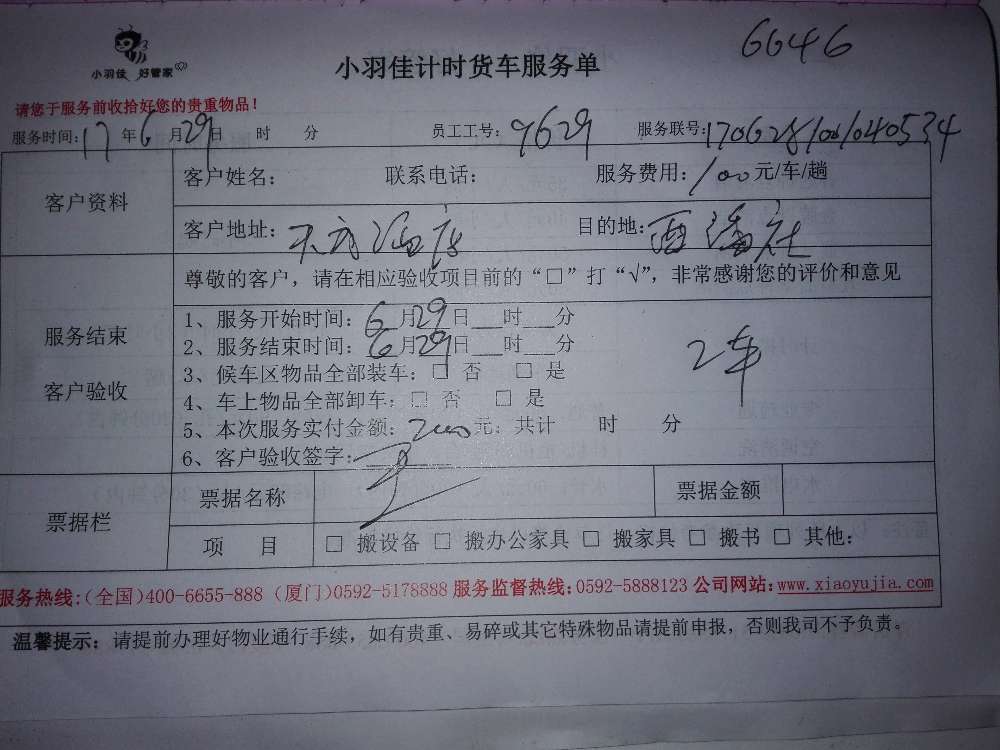 6646
小羽佳 好管家
小羽佳计时货车服务单
请您于服务前收拾好您的贵重物品！
服务时间：17年6月29日 时 分 员工工号：9629 服务联号：1706281001040534
客户资料
客户姓名： 联系电话： 服务费用：100元/车/趟
客户地址： 目的地：西潘社
尊敬的客户，请在相应验收项目前的“□”打“√”，非常感谢您的评价和意见
服务结束
客户验收
1、服务开始时间：6月29日___时___分
2、服务结束时间：6月29日___时___分
3、候车区物品全部装车：□ 否 □ 是
4、车上物品全部卸车：□ 否 □ 是
5、本次服务实付金额：200元；共计 时 分
6、客户验收签字：
2车
票据栏
票据名称 票据金额
项 目 □ 搬设备 □ 搬办公家具 □ 搬家具 □ 搬书 □ 其他：
服务热线:(全国)400-6655-888 (厦门)0592-5178888 服务监督热线:0592-5888123 公司网站:www.xiaoyujia.com
温馨提示：请提前办理好物业通行手续，如有贵重、易碎或其它特殊物品请提前申报，否则我司不予负责。